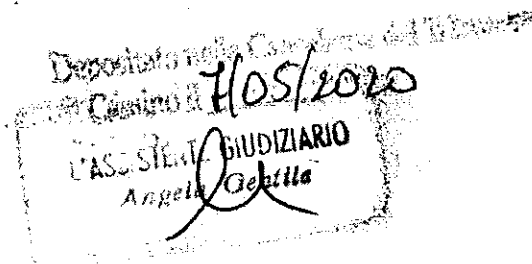 Depositato nella Cancelleria del Tribunale
di Cassino il 7/05/2020
L'ASSISTENTE GIUDIZIARIO
Angela Gentile